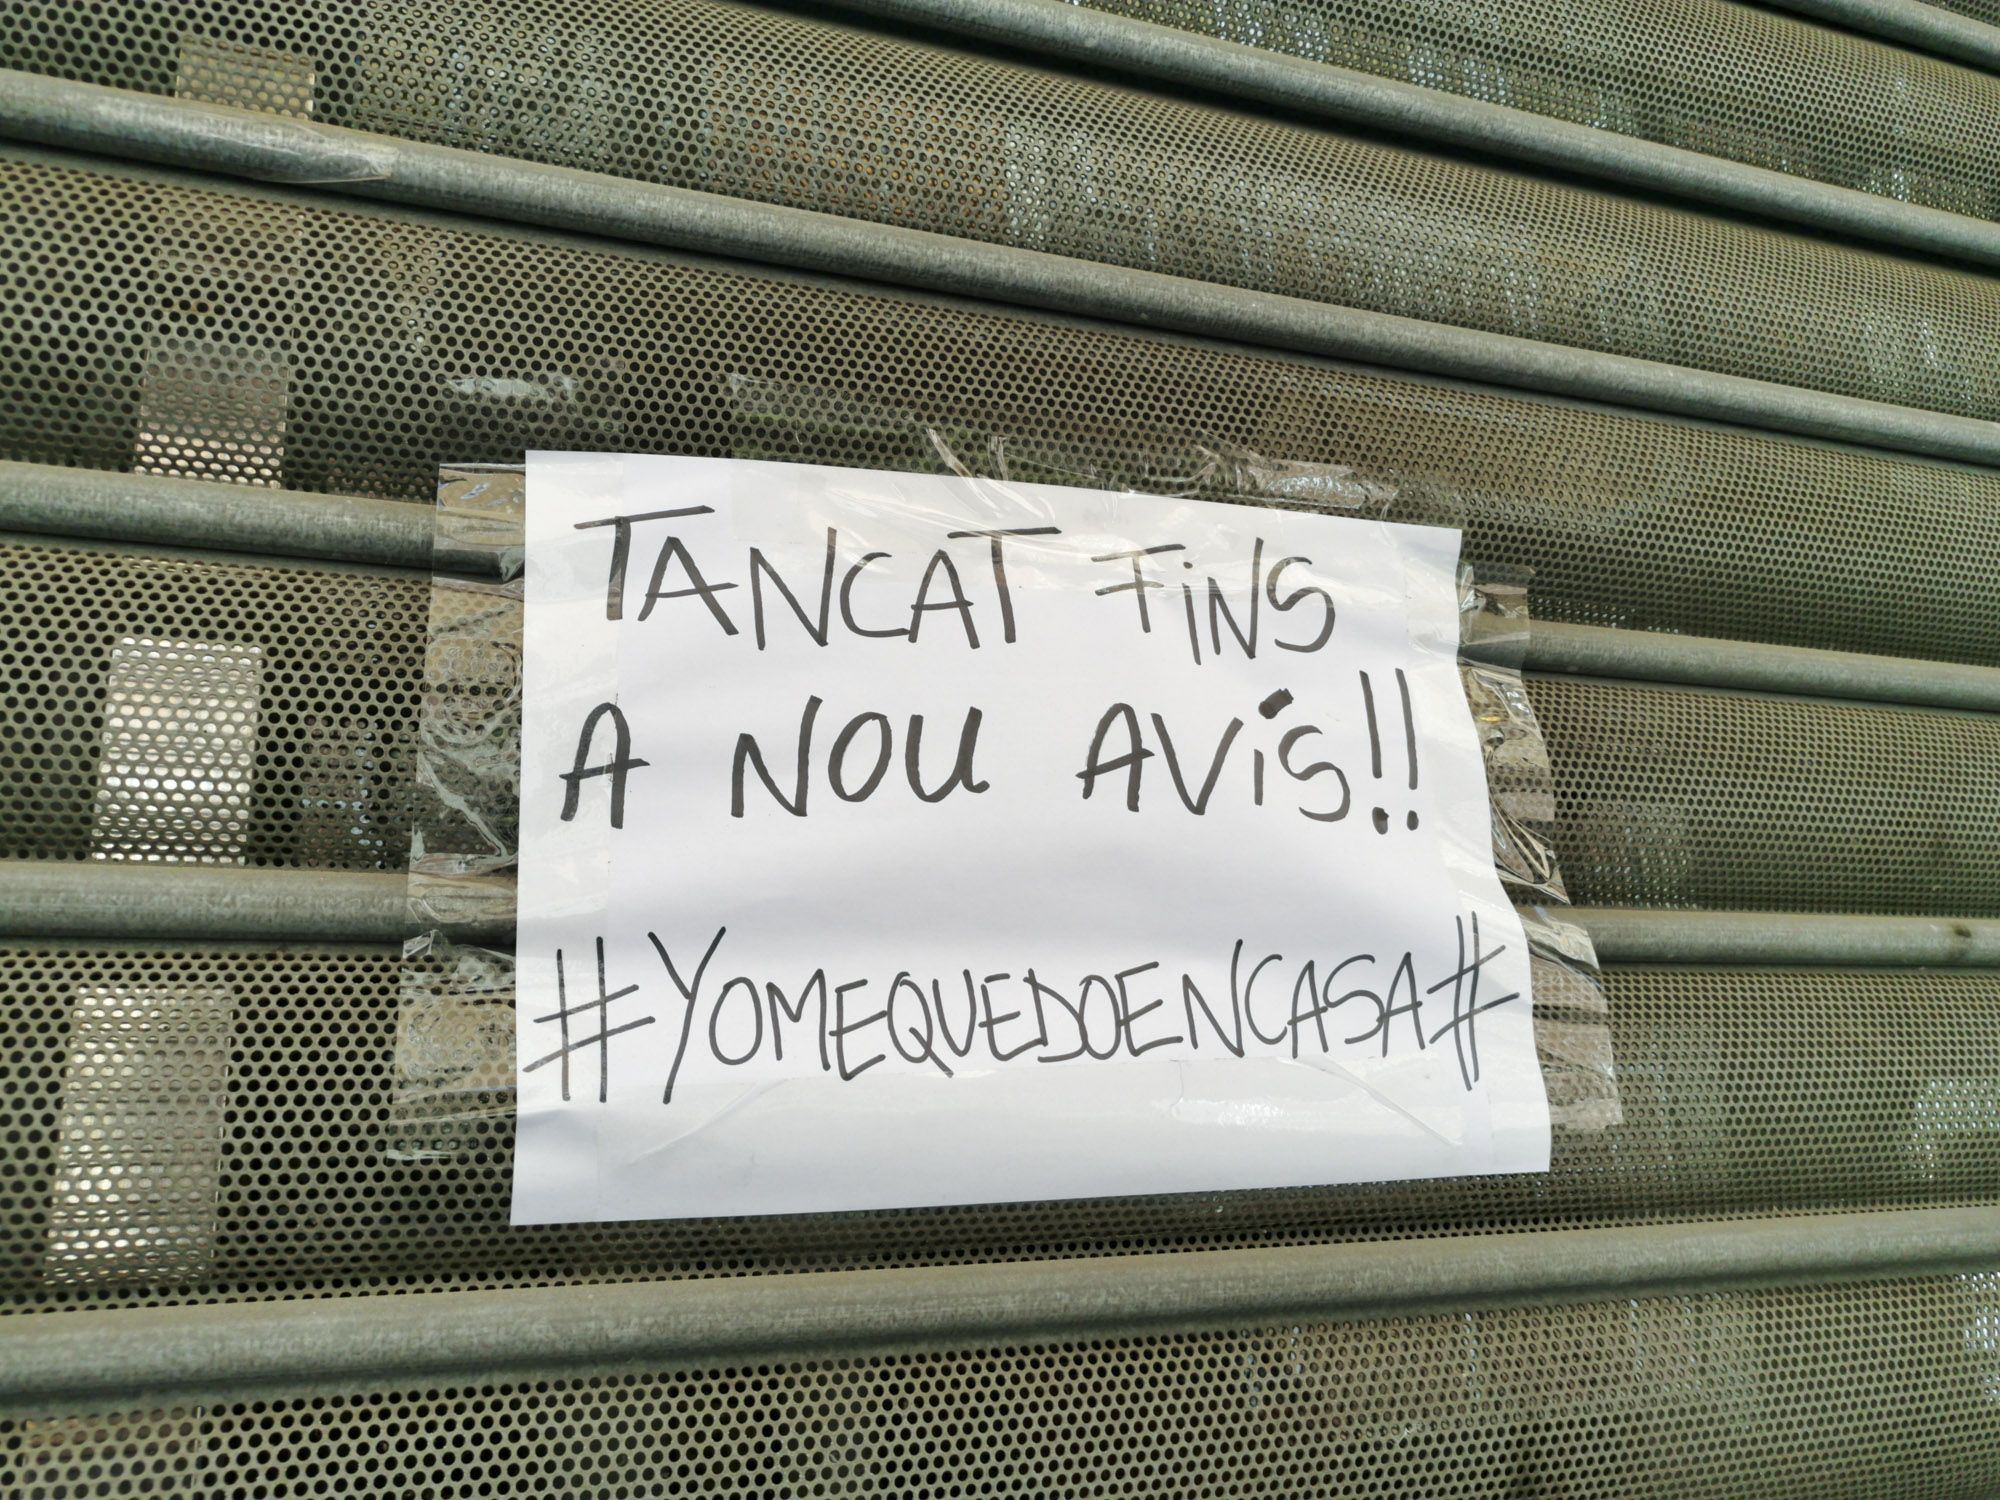 TANCAT FiNS
A NOU AVíS!!
#YOMEQUEDOENCASA#